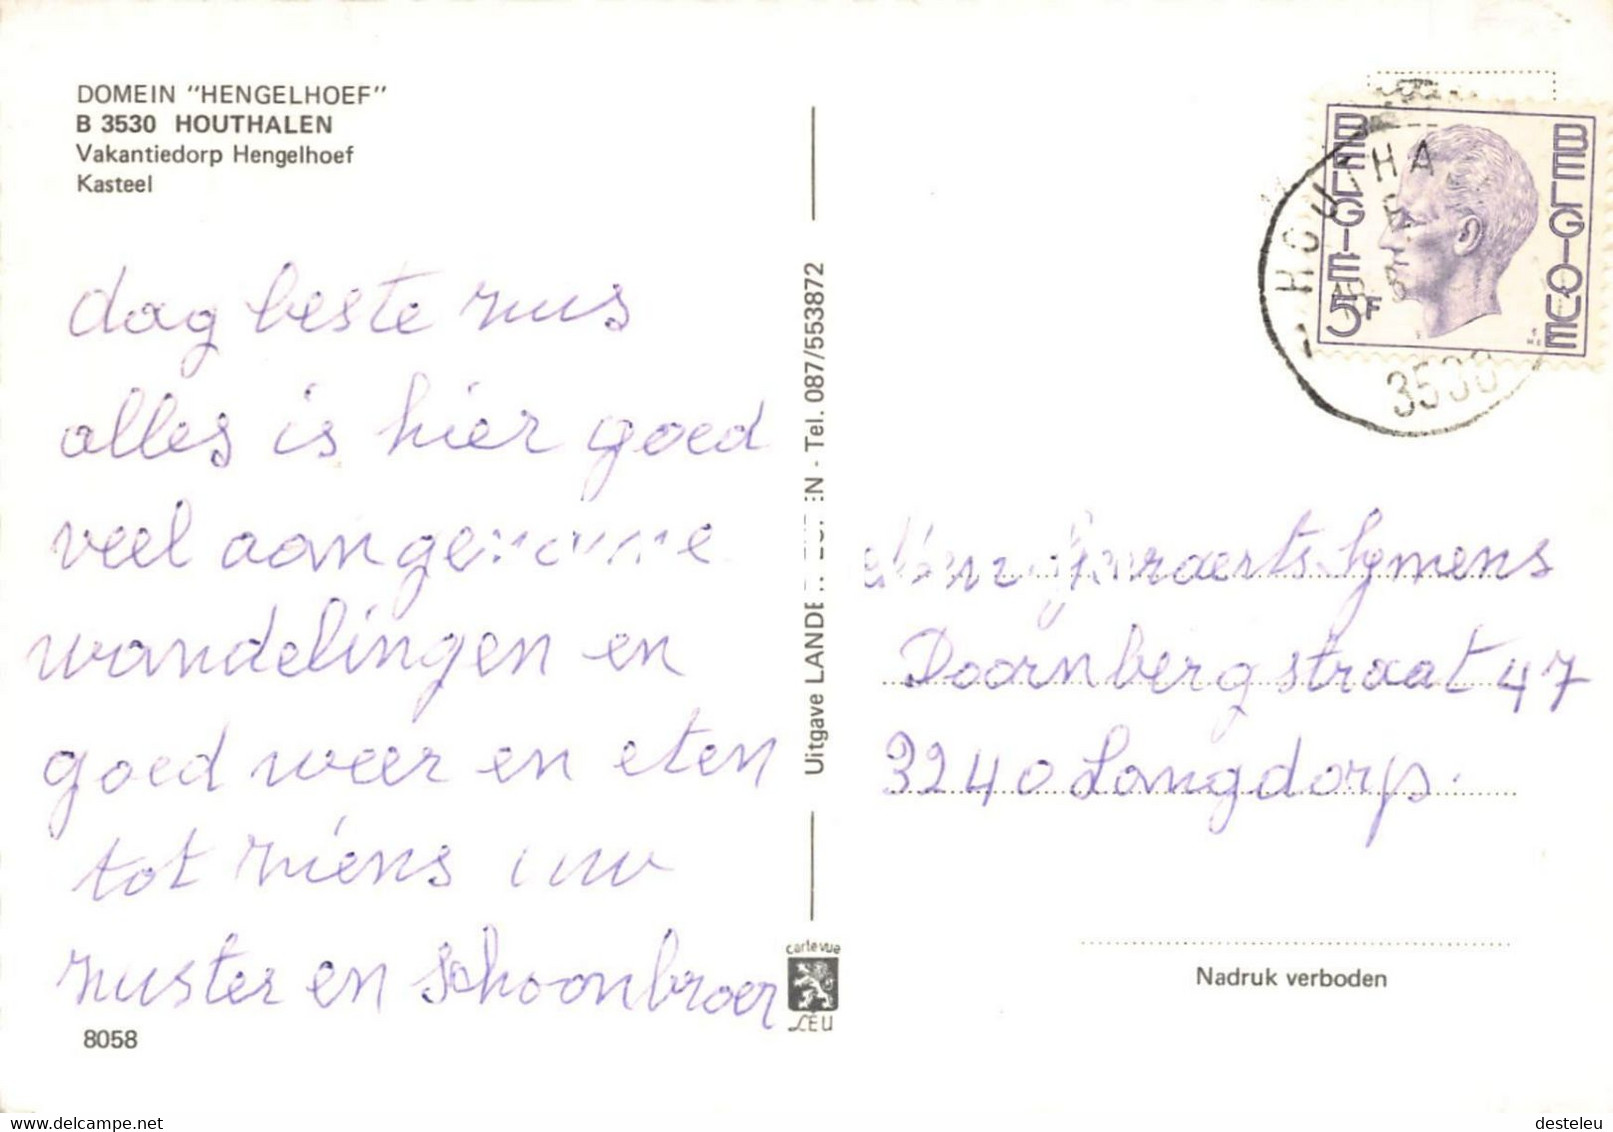 DOMEIN "HENGELHOEF"
B 3530 HOUTHALEN
Vakantiedorp Hengelhoef
Kasteel
dag beste zus
alles is hier goed
veel aangename
wandelingen en
goed weer en eten
tot ziens uw
zuster en schoonbroer
8058
Uitgave LANDE EUPEN - Tel. 087/553872
carte vue
LEU
BELGIE
BELGIQUE
5F
HOUTHA
3530
Geeraerts Symens
Doornbergstraat 47
3240 Langdorp.
Nadruk verboden
www.delcampe.net
desteleu